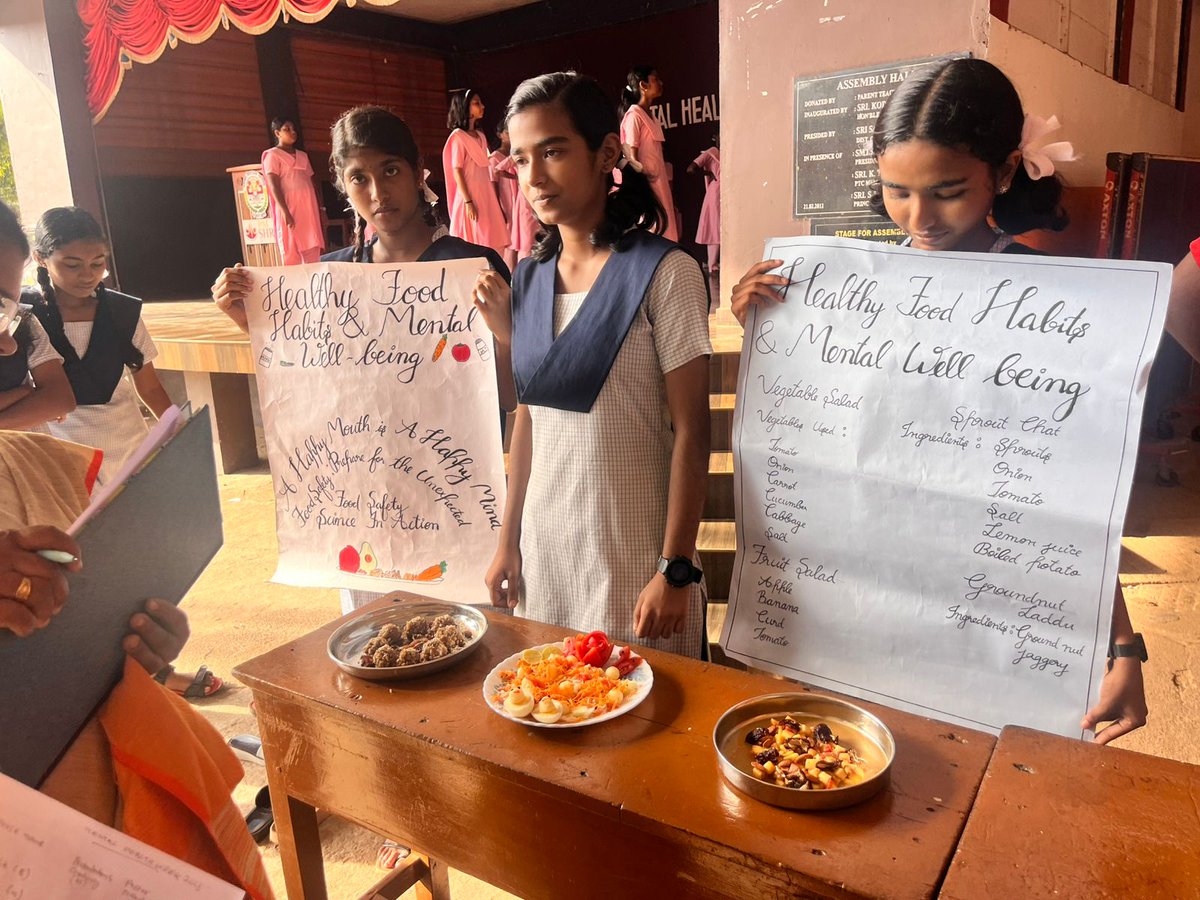 TAL HEAL
ASSEMBLY HAL
DONATED BY : PARENT TEAC
INAUGURATED BY : SRI. KOD
HON'BLE
PRESIDED BY : SRI S
DIST.
IN PRESENCE OF :
PRESID
SRI. K.
PTC
SRI. S
PRINC
21.02.2013
STAGE FOR ASSEMB
SHRI
Healthy Food
Habits & Mental
Well-being
A Healthy Mouth is A Happy Mind
Food safety: Prepare for the Unexpected
Food Safety
Science In Action
Healthy Food Habits
& Mental Well being
Vegetable Salad
Vegetables Used :
Tomato
Onion
Carrot
Cucumber
Cabbage
Salt
Fruit Salad
Apple
Banana
Curd
Tomato
Sprout Chat
Ingredients : Sprouts
Onion
Tomato
Salt
Lemon juice
Boiled potato
Groundnut
Laddu
Ingredients : Ground nut
Jaggery